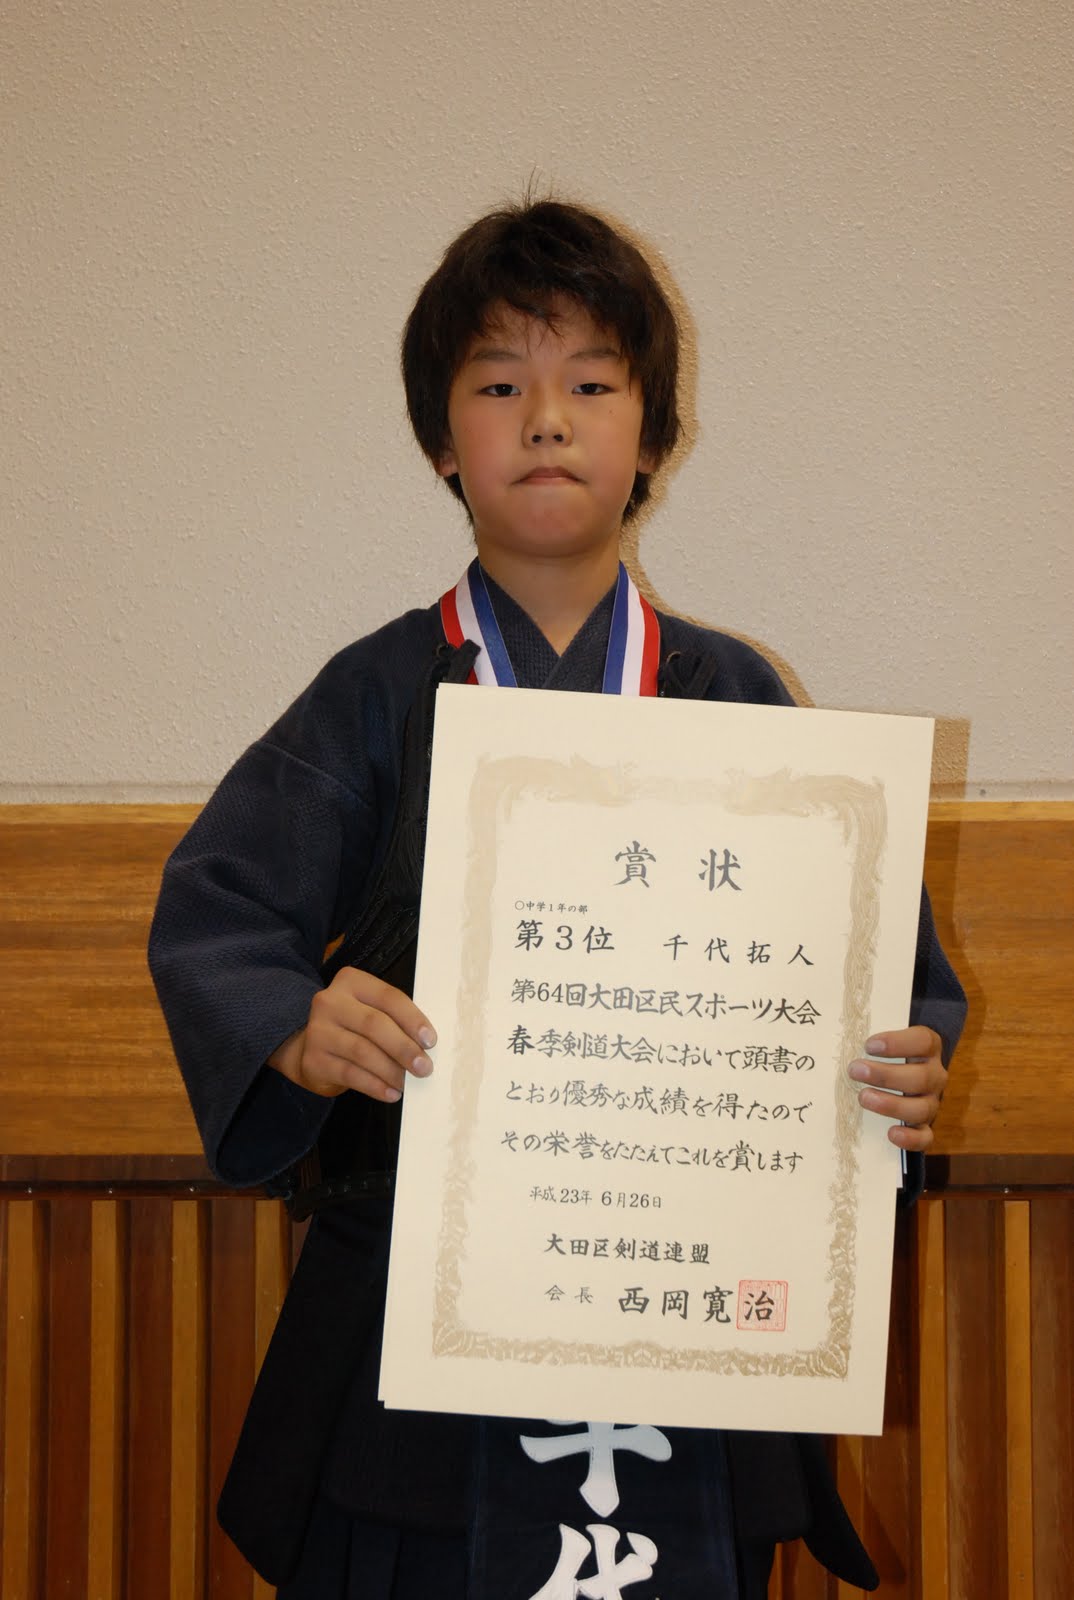 賞状
○中学1年の部
第3位 千代拓人
第64回大田区民スポーツ大会
春季剣道大会において頭書の
とおり優秀な成績を得たので
その栄誉をたたえてこれを賞します
平成23年6月26日
大田区剣道連盟
会長 西岡寛治
千代